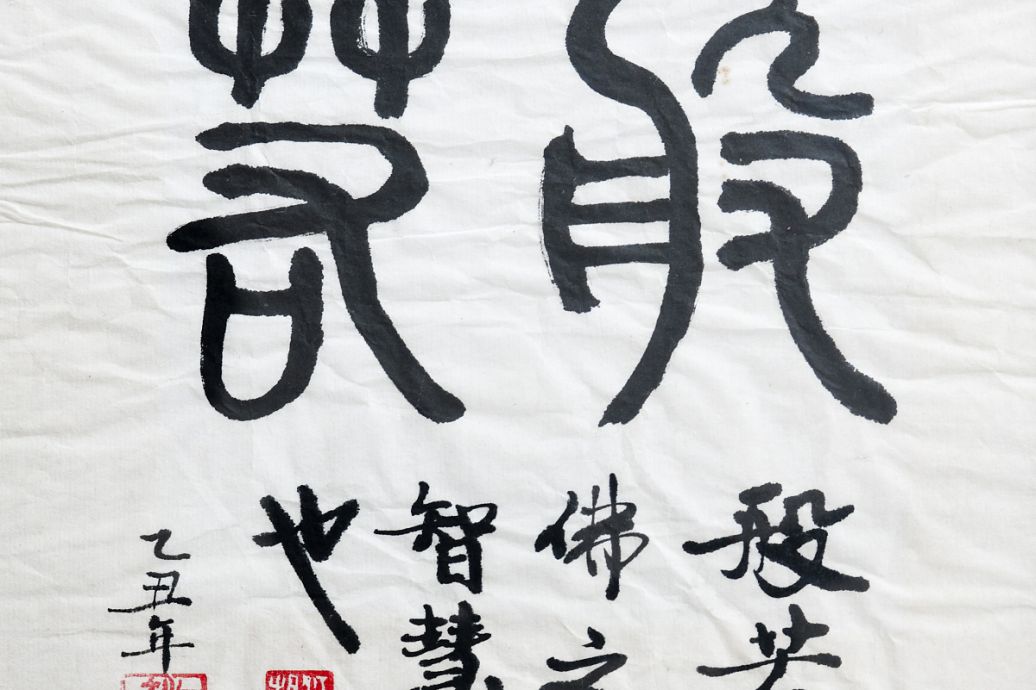 般若
般若
佛之
智慧
也
乙丑年